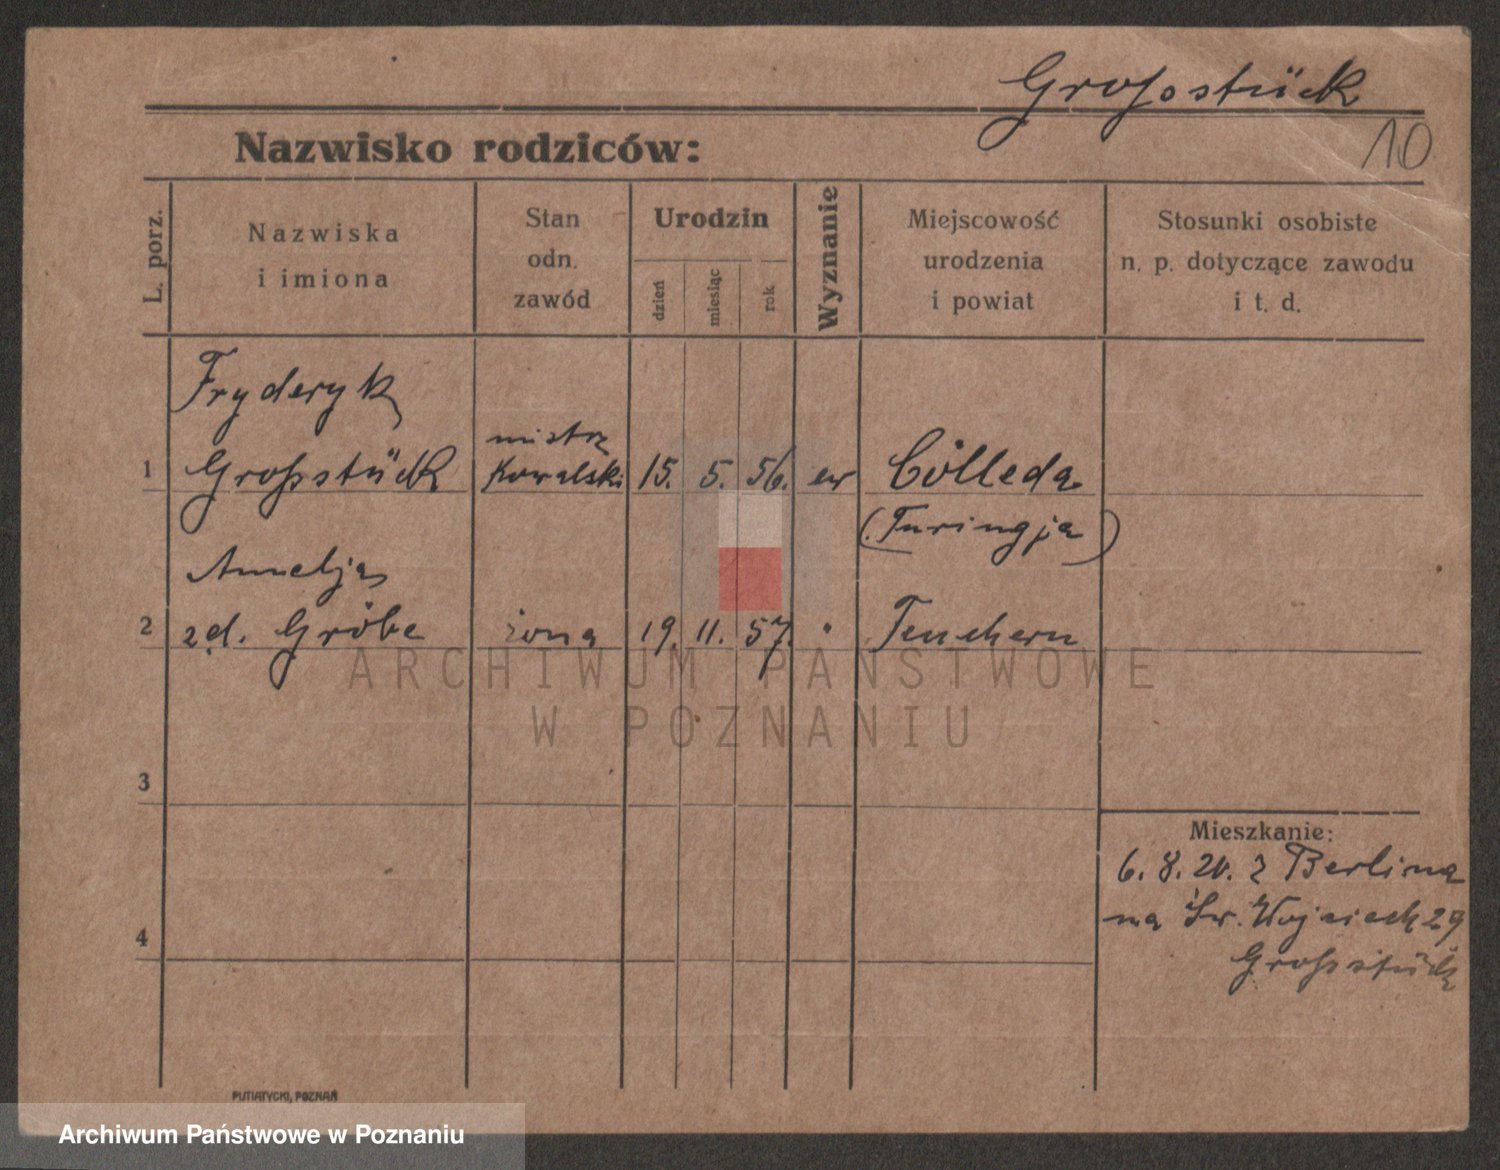 Großstück
10
Nazwisko rodziców:
L. porz.
Nazwiska
i imiona
Stan
odn.
zawód
Urodzin
dzień
miesiąc
rok
Wyznanie
Miejscowość
urodzenia
i powiat
Stosunki osobiste
n. p. dotyczące zawodu
i t. d.
Fryderyk
1 Großstück mistrz kowalski 15. 5. 56. ew Cölleda
(Turingja)
Amelja
2 zd. Gröbe żona 19. 11. 57. " Teuchern
3
4
Mieszkanie:
6. 8. 20. z Berlina
na Św. Wojciech 29
Großstück
PUTIATYCKI, POZNAŃ
ARCHIWUM PAŃSTWOWE
W POZNANIU
Archiwum Państwowe w Poznaniu